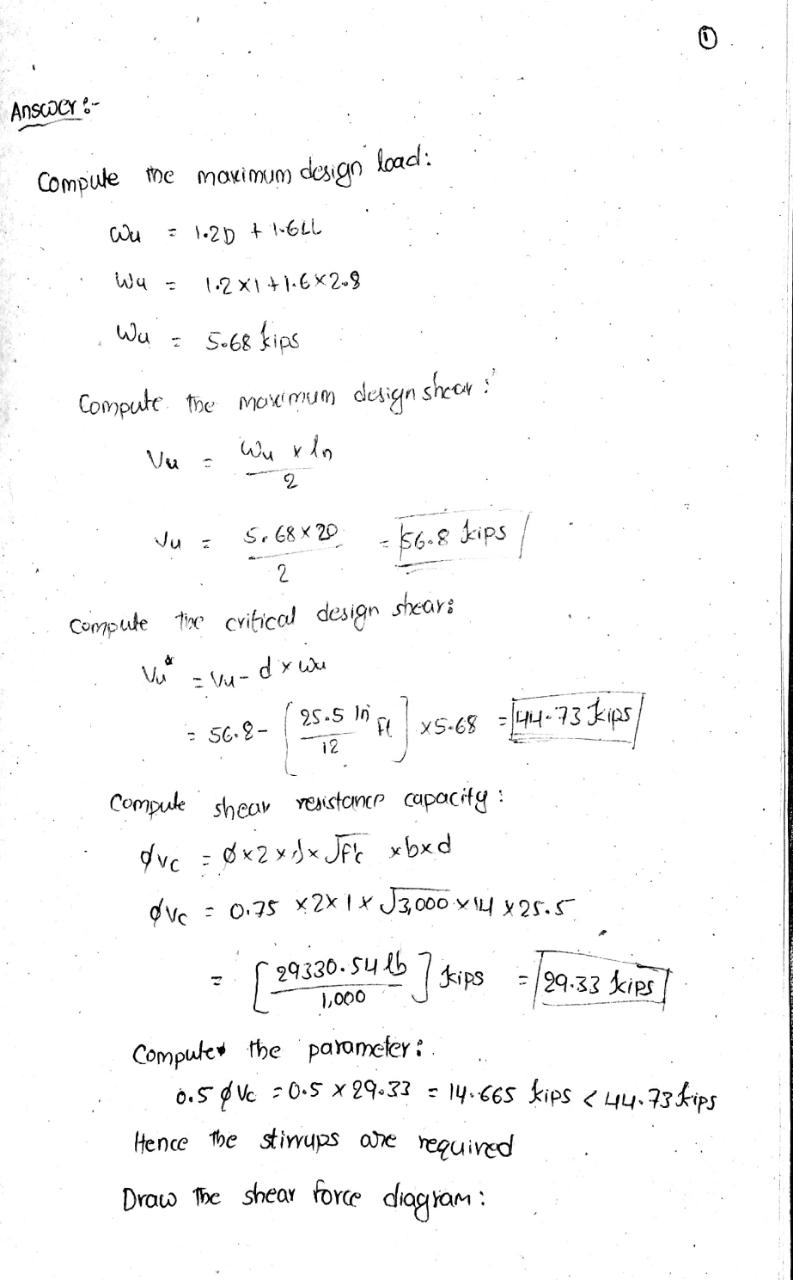 ①
Answer :-
Compute the maximum design load:
Wu = 1.2D + 1.6LL
Wu = 1.2 × 1 + 1.6 × 2.8
Wu = 5.68 kips
Compute the maximum design shear :
Vu = Wu × ln / 2
Vu = 5.68 × 20 / 2 = 56.8 kips
Compute the critical design shear:
Vu* = Vu - d × Wu
= 56.8 - [25.5 in / 12 ft] × 5.68 = 44.73 kips
Compute shear resistance capacity :
φVc = φ × 2 × λ × √f'c × b × d
φVc = 0.75 × 2 × 1 × √3,000 × 14 × 25.5
= [29330.54 lb / 1,000] kips = 29.33 kips
Compute the parameter :
0.5 φ Vc = 0.5 × 29.33 = 14.665 kips < 44.73 kips
Hence the stirrups are required
Draw the shear force diagram :